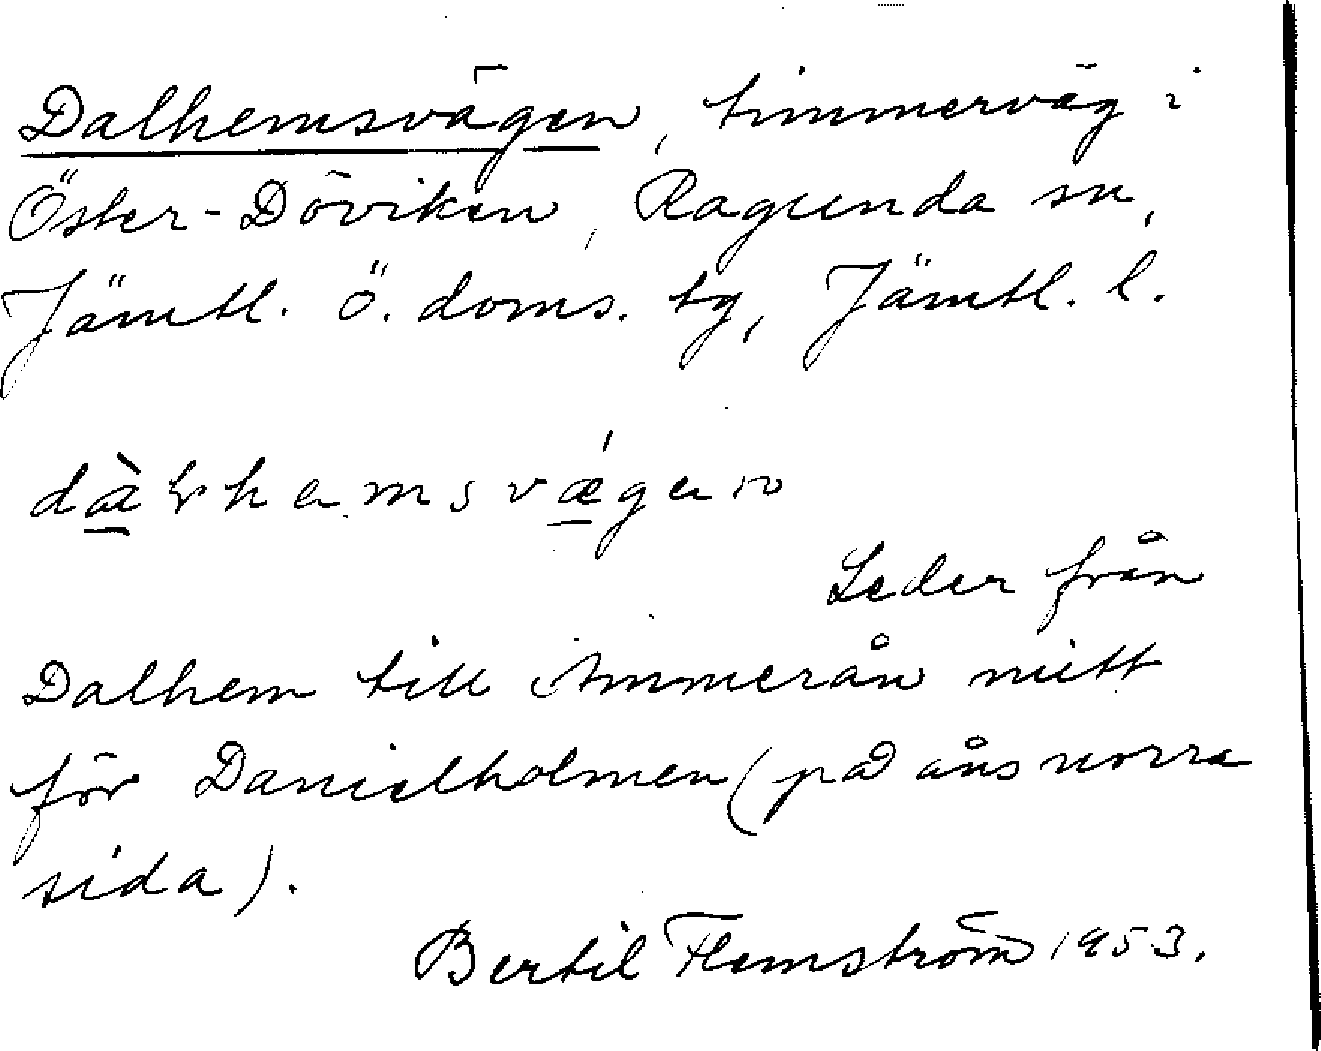 Dalhemsvägen, timmerväg i
Öster-Döviken, Ragunda sn,
Jämtl. ö. doms. tg, Jämtl. l.
Leder från
Dalhem till Ammerån mitt
för Danielholmen (på åns norra
sida).
Bertil Flemström 1953.